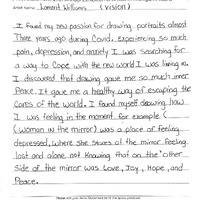 Artist Name: Lamont Williams (Vision)
I found my new passion for drawing portraits almost
Three years ago during Covid. Experiencing so much
pain, depression, and anxiety I was searching for
a way to Cope with the new World I was living in.
I discovered that drawing gave me so much inner
Peace. It gave me a healthy way of escaping the
Cares of the world. I found myself drawing how
I was feeling in the moment. for example (
(Woman in the mirror) was a place of feeling
depressed, where she stares of the mirror feeling
lost and alone not knowing that on the "other
Side of the mirror was Love, Joy, Hope, and
Peace.